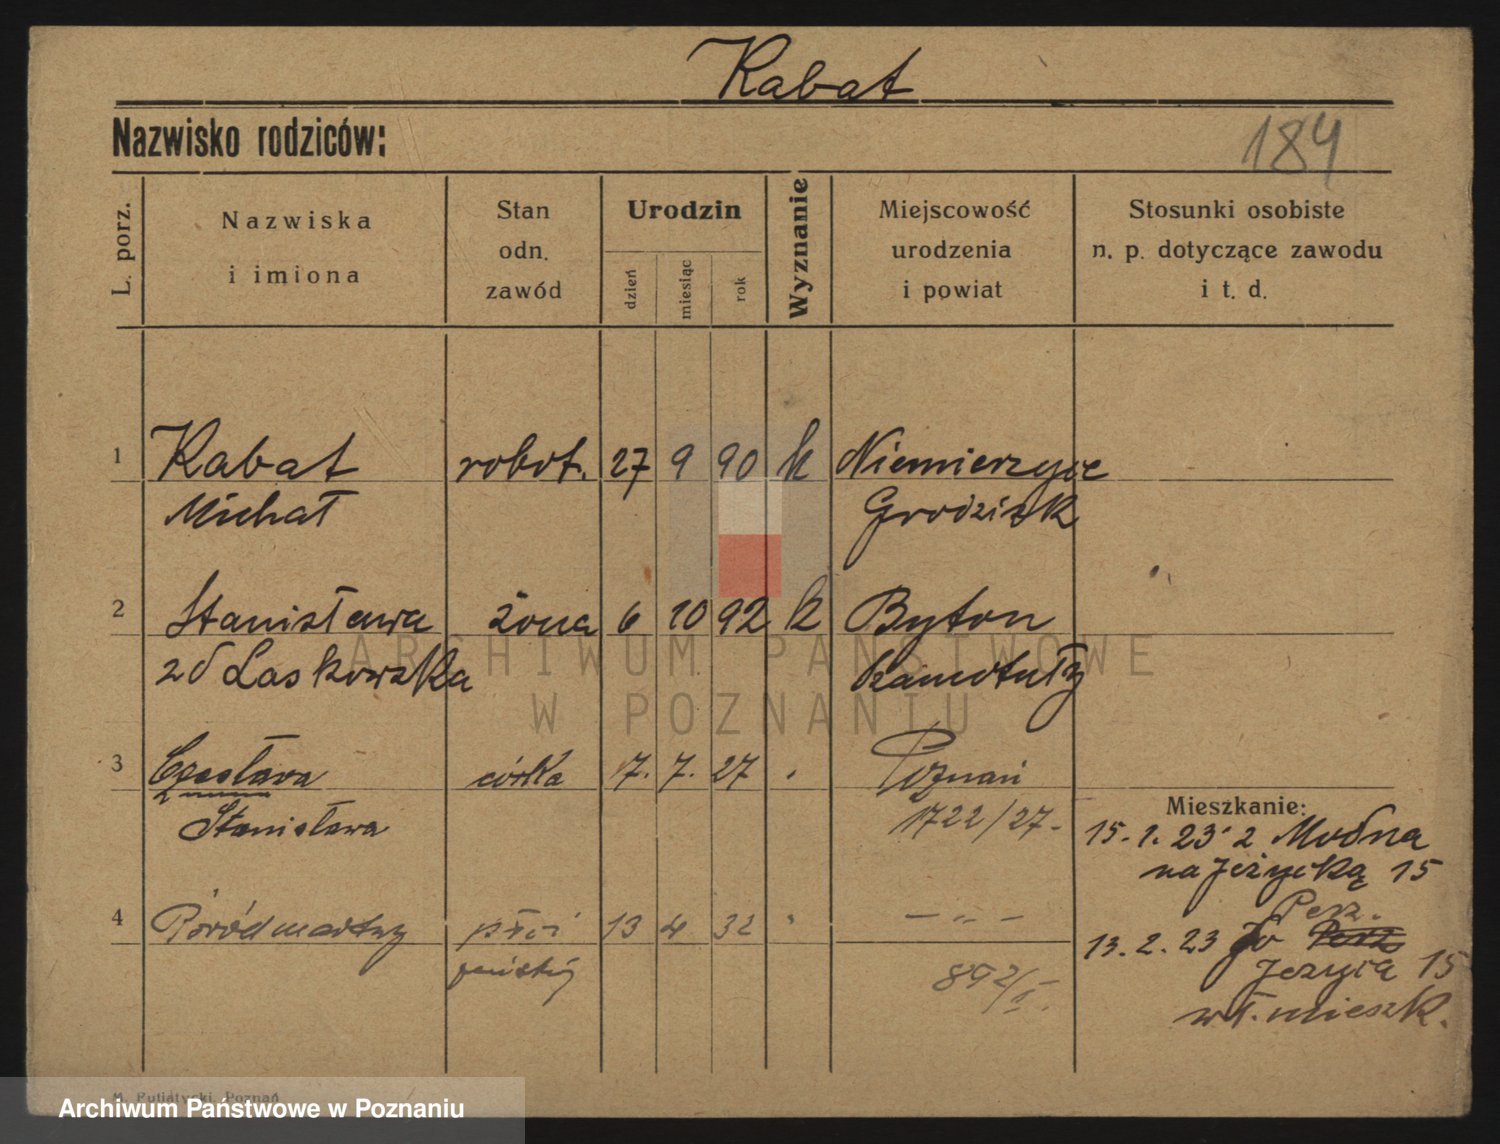 Kabat
Nazwisko rodziców:
184
L. porz.
Nazwiska
i imiona
Stan
odn.
zawód
Urodzin
dzień
miesiąc
rok
Wyznanie
Miejscowość
urodzenia
i powiat
Stosunki osobiste
n. p. dotyczące zawodu
i t. d.
1 Kabat robot. 27 9 90 k Niemierzyce
Michał Grodzisk
2 Stanisława żona 6 10 92 k Byton
zd Laskowska
3 Czesława córka 17. 7. 27 Poznań
Stanisława 1722/27.
Mieszkanie:
15.1.23 z Modna
na Jeżycką 15
4 Poród martwy płci 13 4 32 - " -
żeńskiej 892/II.
Perz.
13.2.23
Jeżycka 15
wł. mieszk.
ARCHIWUM PAŃSTWOWE
W POZNANIU
M. Putiatycki, Poznań
Archiwum Państwowe w Poznaniu